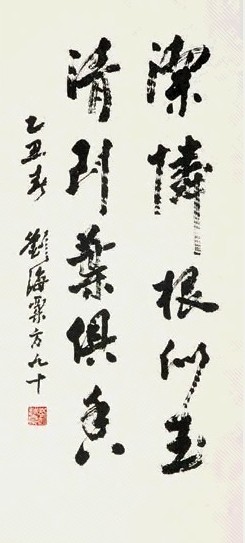 潔憐根似玉
清到葉俱香
乙丑春 劉海粟方九十